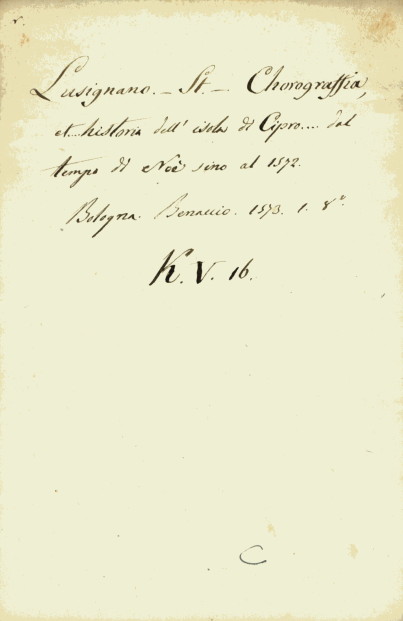 Lusignano. - St. - Chorograffia,
et... historia dell' isola di Cipro.... dal
tempo di Noè sino al 1572.
Bologna. Benaccio. 1573. 1. 8°
K. V. 16.